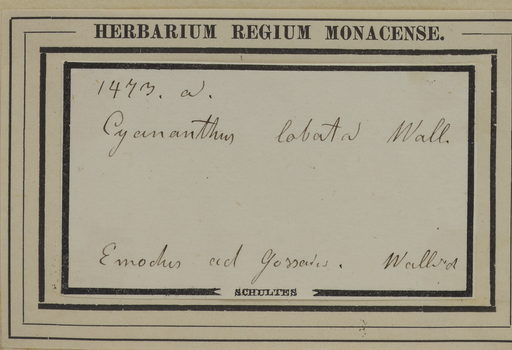 HERBARIUM REGIUM MONACENSE.
1473. a.
Cyananthus lobata Wall.
Emodus ad Gossain. Wallich
SCHULTES